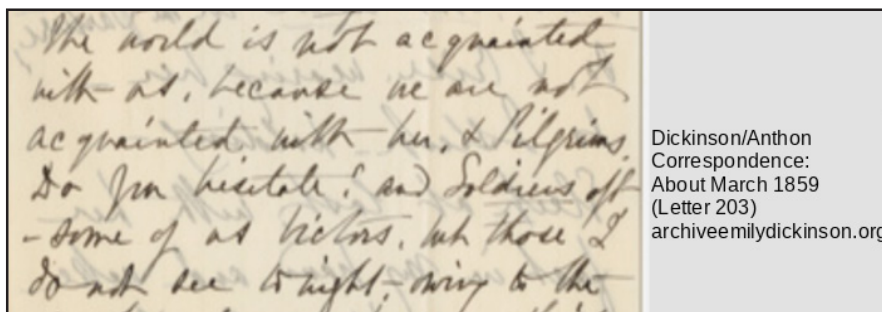 The world is not acquainted
with us, because we are not
acquainted with her. & Pilgrims.
Do you hesitate? and Soldiers oft
- some of us Victors, but those I
do not see to night, owing to the
Dickinson/Anthon
Correspondence:
About March 1859
(Letter 203)
archiveemilydickinson.org